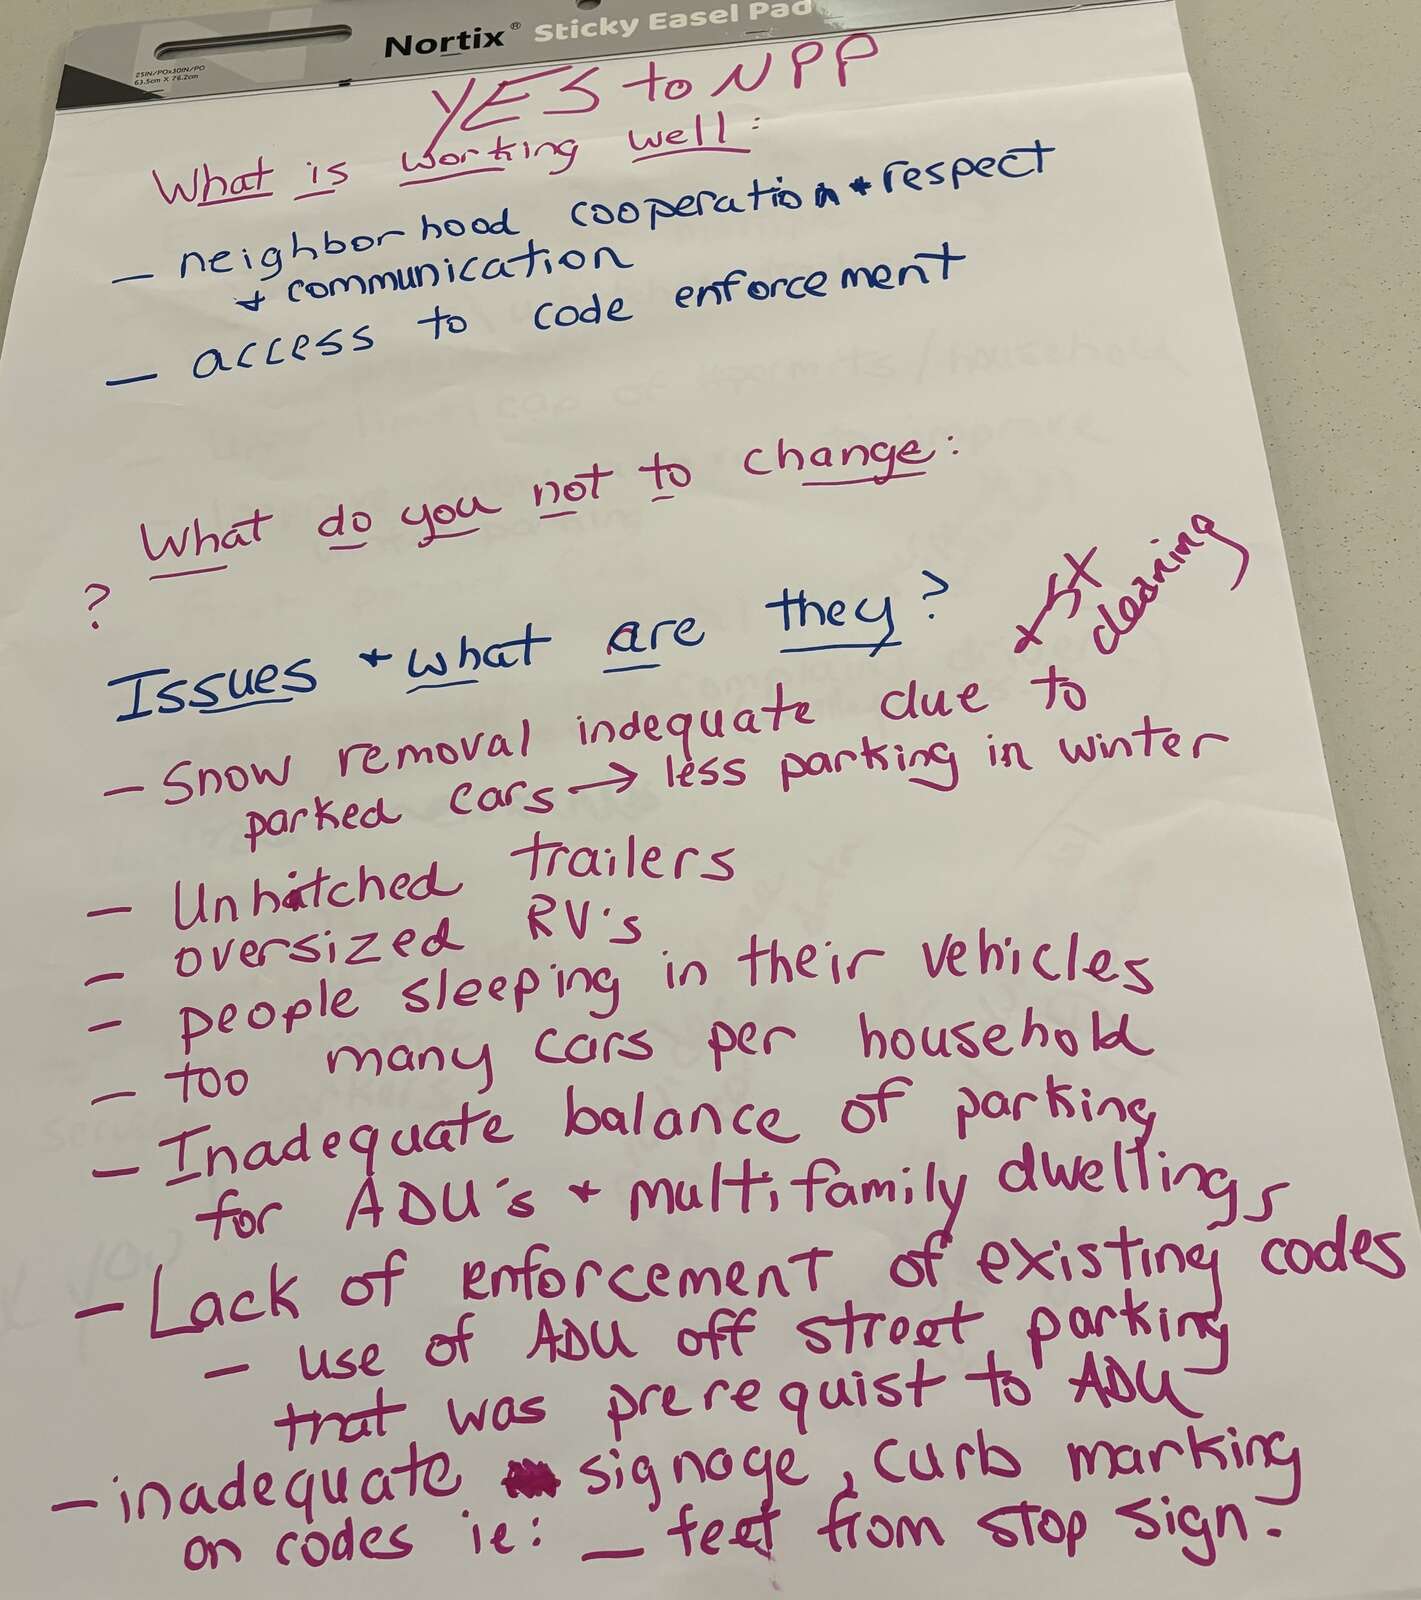 Nortix® Sticky Easel Pad
25IN/PO×30IN/PO
63.5cm X 76.2cm
YES to NPP
What is working well:
- neighborhood cooperation + respect
+ communication
- access to code enforcement
What do you not to change:
?
Issues + what are they?
+ st
cleaning
- Snow removal indequate due to
parked cars → less parking in winter
- Unhitched trailers
- oversized RV's
- people sleeping in their vehicles
- too many cars per household
- Inadequate balance of parking
for ADU's + multifamily dwellings
- Lack of enforcement of existing codes
- use of ADU off street parking
that was prerequist to ADU
- inadequate signage, curb marking
on codes ie: _ feet from stop sign.